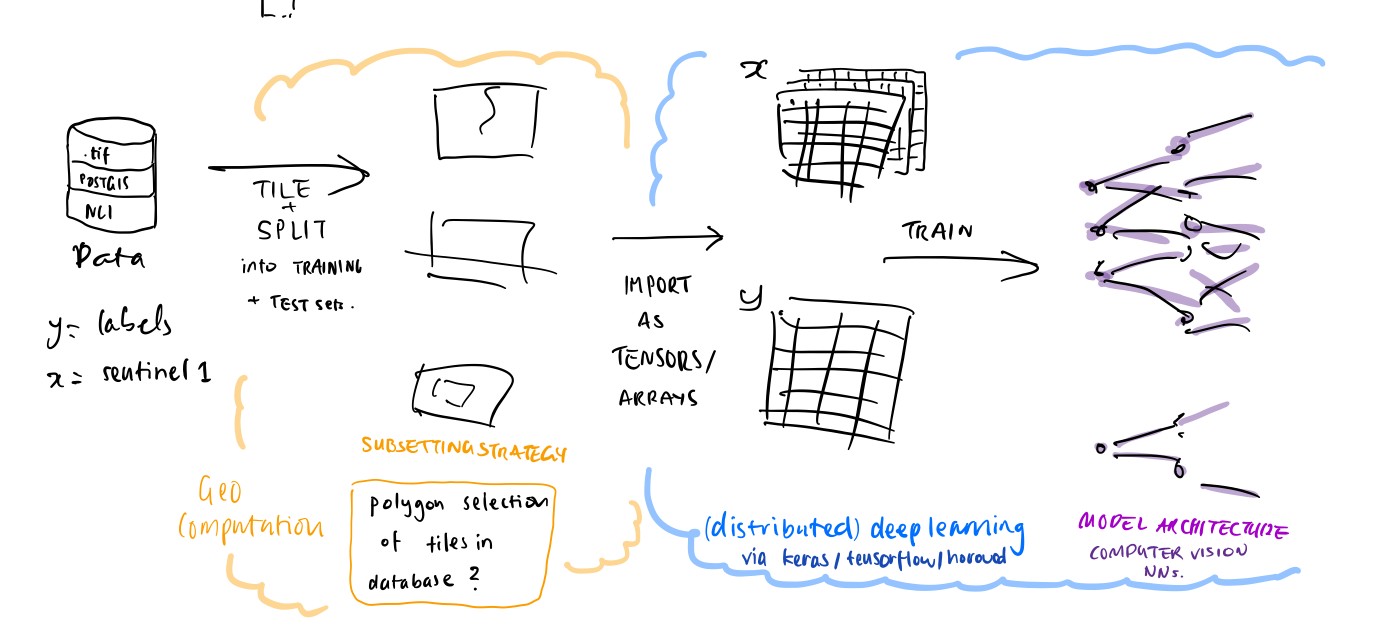 .tif
POSTGIS
NCI
Data
y= labels
x= sentinel 1
TILE
+
SPLIT
into TRAINING
+ TEST sets.
SUBSETTING STRATEGY
polygon selection
of tiles in
database ?
Geo
Computation
IMPORT
AS
TENSORS/
ARRAYS
x
y
TRAIN
(distributed) deep learning
via keras/tensorflow/horovod
MODEL ARCHITECTURE
COMPUTER VISION
NNs.